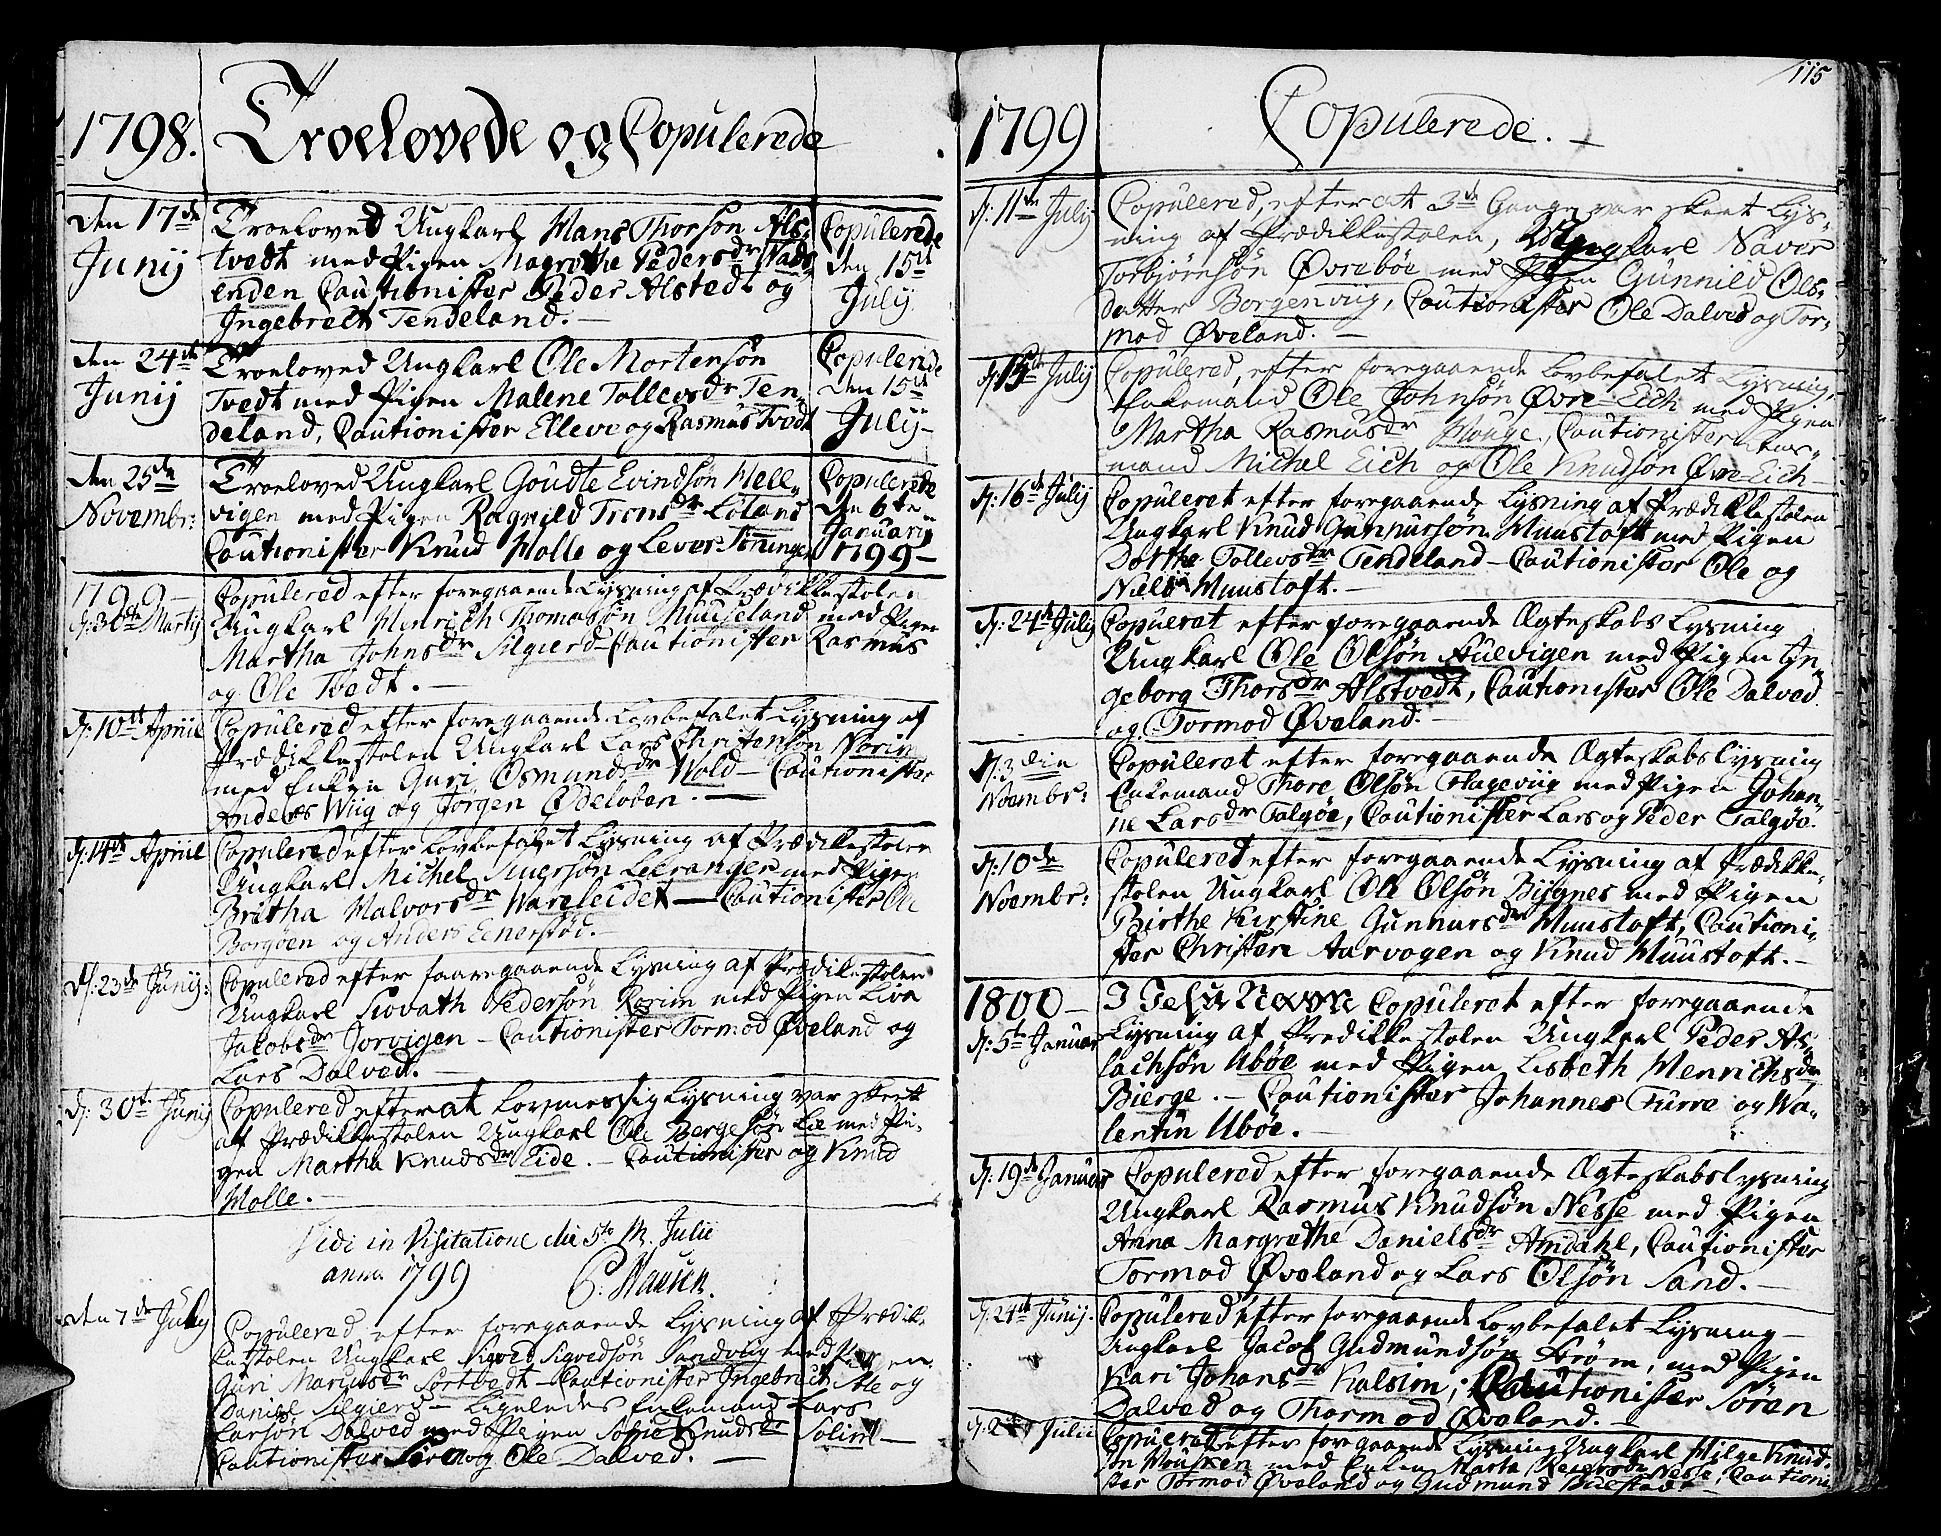 1798. Troelovede og Copulerede
Den 17de Junij
Troeloved Ungkarl Hans Thorsøn Als-
tvedt med Pigen Magrethe Pedersdr Nads
enden Cautionister Peder Alstedt og
Ingebrelt Tendeland. —
Copulerede
den 15de
Julij
den 24de Junij
Troeloved Ungkarl Ole Mortensøn
Tvedt med Pigen Malene Tollevsdr Ten-
deland, Cautionister Elleve og Rasmus Tvedt
Copulerede
den 15de
Julij —
den 25de Novembr:
Troeloved Ungkarl Goudte Evindsøn Hell-
vigen med Pigen Ragnild Tronsdr Løland
Cautionister Knud Molle og Lever Tininge
Copulerede
den 6te
Januarij
1799 —
1799 —
d: 30te Martij
Copulered efter foregaaende Lysning af Prædikkestolen
Ungkarl Henrich Thomasøn Muuseland med Pigen
Martha Johnsdr Silgierd — Cautionister Rasmus
og Ole Tvedt. —
d: 10de Apriil
Copulered efter foregaaende Lovbefalet Lysning af
Prædikkestolen Ungkarl Lars Christensøn Norim
med Enken Guri Osmundsdr Wold — Cautionister
Anders Wiig og Jørgen Ødeloben. —
d: 14de Apriil
Copulered efter Lovbefalet Lysning af Prædikestolen
Ungkarl Michel Siversøn Leeranger med Pigen
Britha Halvorsdr Wareleidet — Cautionister Ole
Borgøen og Anders Einerstød. —
d: 23de Junij:
Copulered efter faaregaaende Lysning af Prædikestolen
Ungkarl Siovath Pedersøn Rorim med Pigen Liva
Jakobsdr Jorvigen — Cautionister Tormod Øveland og
Lars Dalved. —
d: 30te Junij
Copulered efter at Lovmessig Lysning var skeet
af Prædikkestolen Ungkarl Ole Bergesøn Lie med Pi-
gen Martha Knudsdr Eide. — Cautionister og Knud
Molle. —
Vidi in Visitatione die 5te M. Julii
anno 1799
P. Hansen.
den 7de Julij
Copulered efter foregaaende Lysning af Prædik-
kestolen Ungkarl Sigved Sigvedsøn Sandviig med Pigen
Guri Mariusdr Sortvedt — Cautionister Ingebrict Ale og
Daniel Silgierd — Ligeledes Enkemand Lars
Larsøn Dalved med Pigen Sophie Knudsdr Solim —
Cautionister Søren og Ole Dalved. —
115
1799 Copulerede. —
d: 11te Julij
Copulered, efter at 3de Gange var skeet Lys-
ning af Prædikkestolen, Ungkarl Naver
Torbjørensøn Øvrebøe med Pigen Gunnild Ols-
datter Borgenviig, Cautionister Ole Dalved og Tor-
mod Øveland. —
d: 15de Julij
Copulered, efter foregaaende Lovbefalet Lysning,
Enkemand Ole Johnsøn Øvre-Eich med Pigen
Martha Rasmusdr Houge, Cautionister Lens-
mand Michel Eich og Ole Knudsøn Øvre-Eich —
d: 16de Julij
Copuleret efter foregaaende Lysning af Prædikkestolen
Ungkarl Knud Gunnursøn Muustoft med Pigen
Dorthe Tollevsdr Tendeland — Cautionister Ole og
Niels Muustoft. —
d: 24de Julij
Copuleret efter foregaaende Ægteskabs Lysning
Ungkarl Ole Olsøn Fuevigen med Pigen In-
geborg Thorsdr Alstvedt, Cautionister Ole Dalved
og Tormod Øveland. —
d: 3die Noembr:
Copuleret efter foregaaende Ægteskabs lysning
Enkemand Thore Olsøn Hageviig med Pigen Johan-
ne Larsdr Talgøe, Cautionister Lars og Peder Talgøe.
d: 10de Noembr:
Copulered efter foregaaende Lysning af Prædikke-
stolen Ungkarl Ole Olsøn Bygnes med Pigen
Birthe Kirstine Gunnursdr Muustoft, Cautioni-
ster Christen Aarvogen og Knud Muustoft. —
1800 —
d: 5te Januar
I Jesu Navn Copuleret efter foregaaende
Lysning af Predikkestolen Ungkarl Peder As-
lachsøn Ubøe med Pigen Lisbeth Henrichsdr
Bierge. — Cautionister Johannes Furre og Wa-
lentin Ubøe. —
d: 19de Januar
Copulered efter foregaaende Ægteskabs lysning
Ungkarl Rasmus Knudsøn Nesse med Pigen
Anna Margrethe Danielsdr Amdahl, Cautionister
Tormod Øveland og Lars Olsøn Sand. —
d: 24de Junij.
Copulered efter foregaaende Lovbefalet Lysning —
Ungkarl Jacob Gudmundsøn Strøm, med Pigen
Kari Johansdr Kalsim; Cautionister Søren
Dalved og Thormod Øveland. —
Julii
Copulered efter foregaaende Lysning Ungkarl Hilge Knud-
søn med Enken Marta Nesse, Cautioni-
ster Tormod Øveland og Gudmund